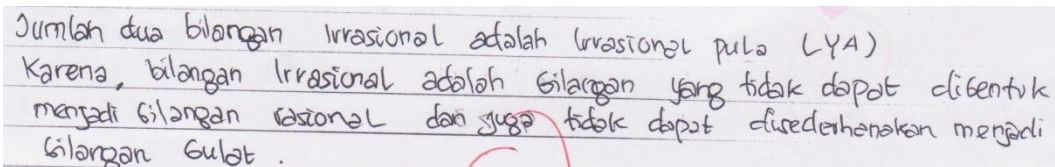 Jumlah dua bilangan Irrasional adalah Irrasional pula (YA)
Karena, bilangan Irrasional adalah bilangan yang tidak dapat dibentuk
menjadi bilangan rasional dan juga tidak dapat disederhanakan menjadi
bilangan bulat.